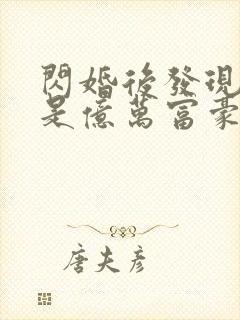 閃婚後發現
是億萬富豪
唐夫彥